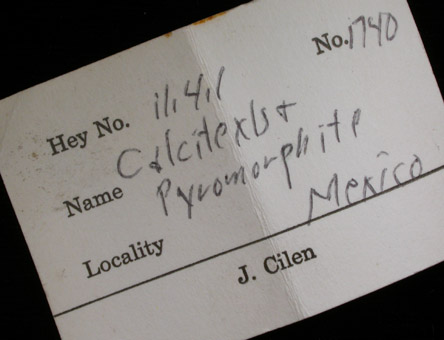 No. 1740
Hey No. 11.4.1
Calcite xls +
Name Pyromorphite
Locality Mexico
J. Cilen